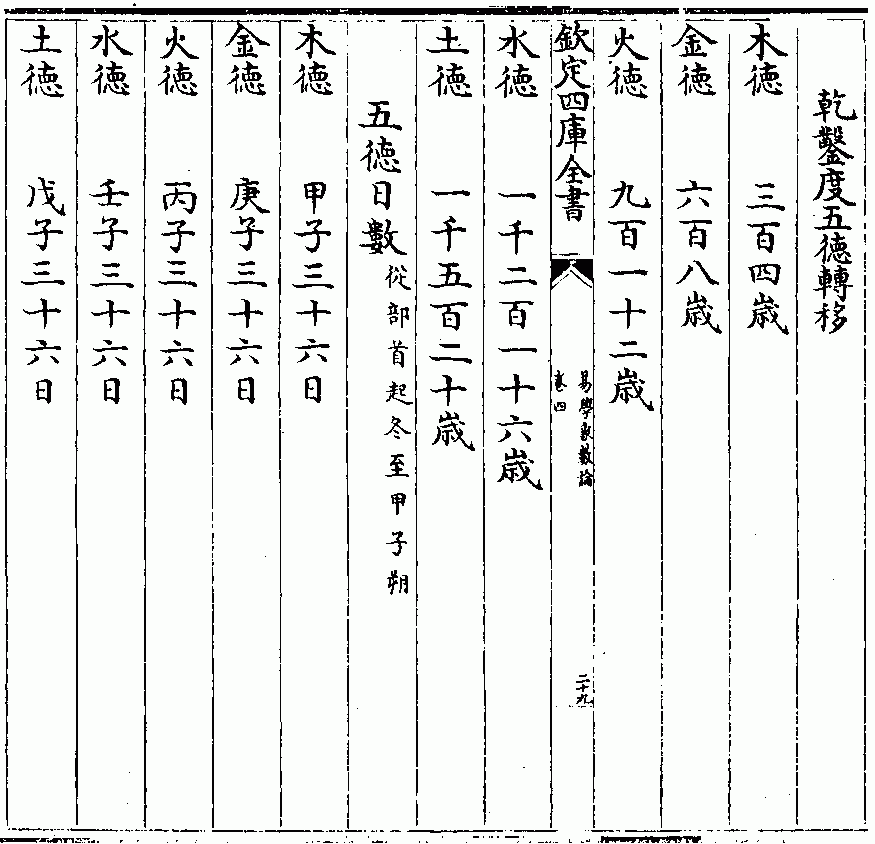 乾鑿度五德轉移
木德　三百四歲
金德　六百八歲
火德　九百一十二歲
欽定四庫全書
易學象數論
卷四
二十九
水德　一千二百一十六歲
土德　一千五百二十歲
五德日數從部首起冬至甲子朔
木德　甲子三十六日
金德　庚子三十六日
火德　丙子三十六日
水德　壬子三十六日
土德　戊子三十六日